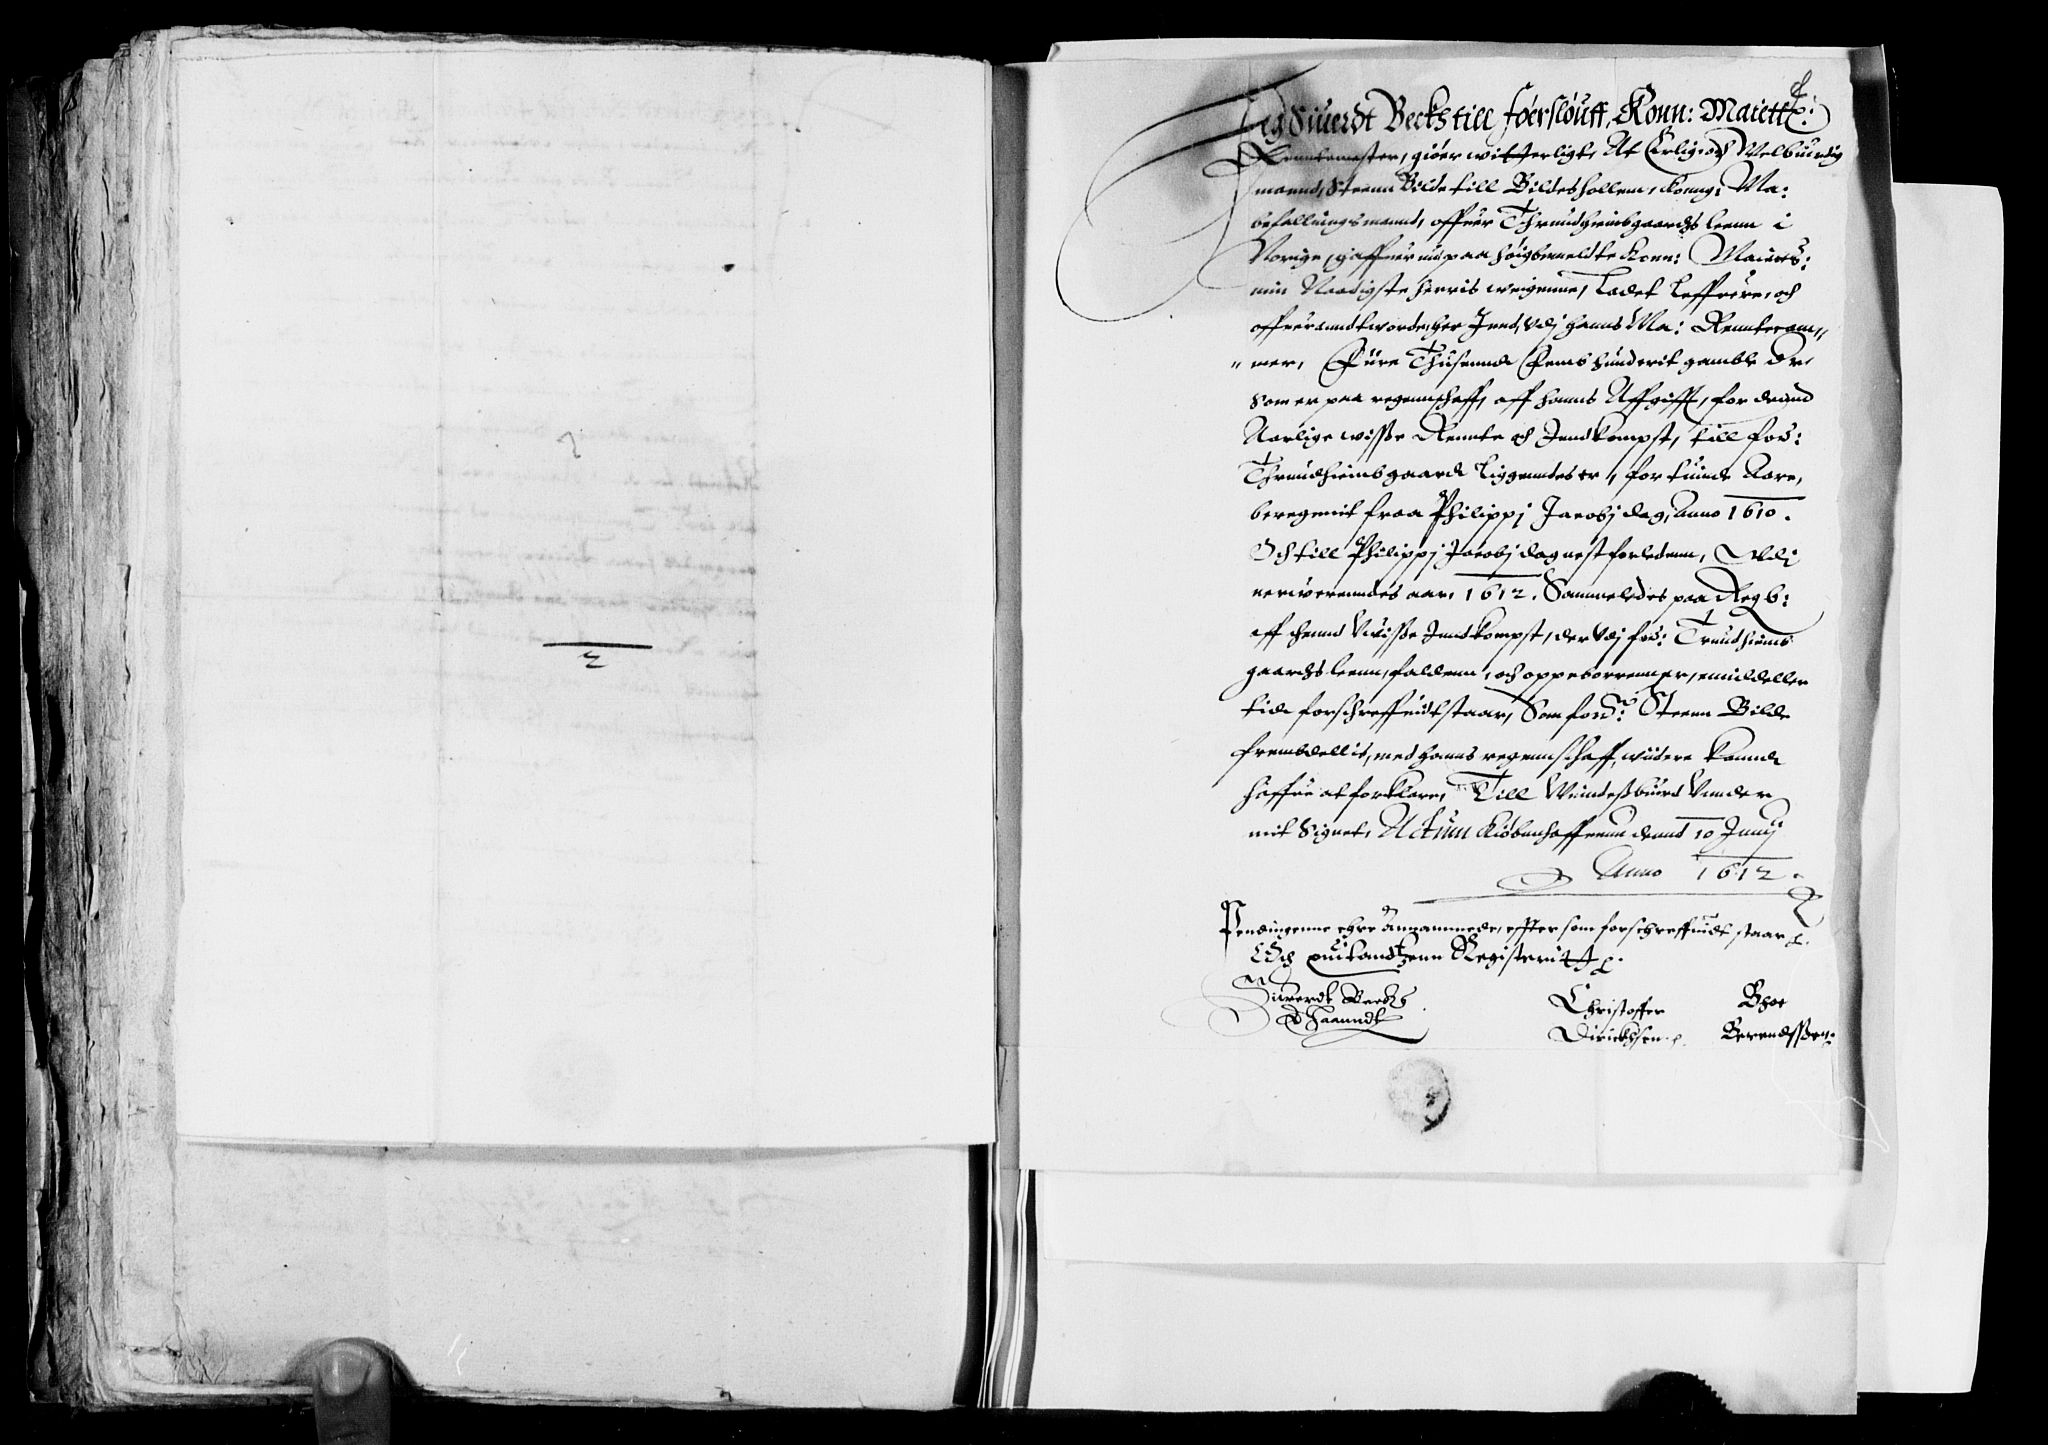 Jeg Siuerdt Beckˢ till Føerslöuff, Konn: Maiettz:
Renntemester, giøer witterligt, At Erlig och Welbürdig
mannd, Steenn Bilde till Bildeshollem, Konng: Ma:
befallingsmannd, offuer Thrundhiembsgaardtz leenn i
Norige, haffuer nu paa høigbemeldte Konn: Maietts:
min Naadigste herris weigenne, Ladet Leffrere, och
offuerandtworde, her Jnnd, Vdj hanns Ma: Renntecam,,
,,mer, Füre Thusennde Fembhunderit gamble dr,
som er paa regennschaff, aff hanns Affgifft, for dennd
Aarlige wisse Rennte och Jndkompst, till for:
Thrundhiembsgaard Liggenndes er, for tuinde Aare,
beregenit fraa Philippj Jacobj dag, Anno 1610.
Och till Philippj Jacobj dag nest forledenn, Vdi
neruerenndes aar, 1612. Sammeledes paa Regb:
aff dennd Vuisse Jnndkompst, der Vdj for: Trundhiems
gaardtz leenn, faldenn, och oppeborrenn er, imideller
tid forschreffuidt staar, Som ford: Steenn Bilde
frembdellis, med hanns regennschaff, widere kannd
haffue at forklare, Till Windesbürd Vnnder
mit Signet, Actum Kiøbenhaffuenn dennd 10 Junij
Anno 1612.
Pendingenne ehre Annammede, effter som forschreffuidt staar
Och quitandtzenn Registerit
Siuerdt Beckˢ
E haanndt
Christoffer
Dirickhsen.
Bhoe
Berendssen: